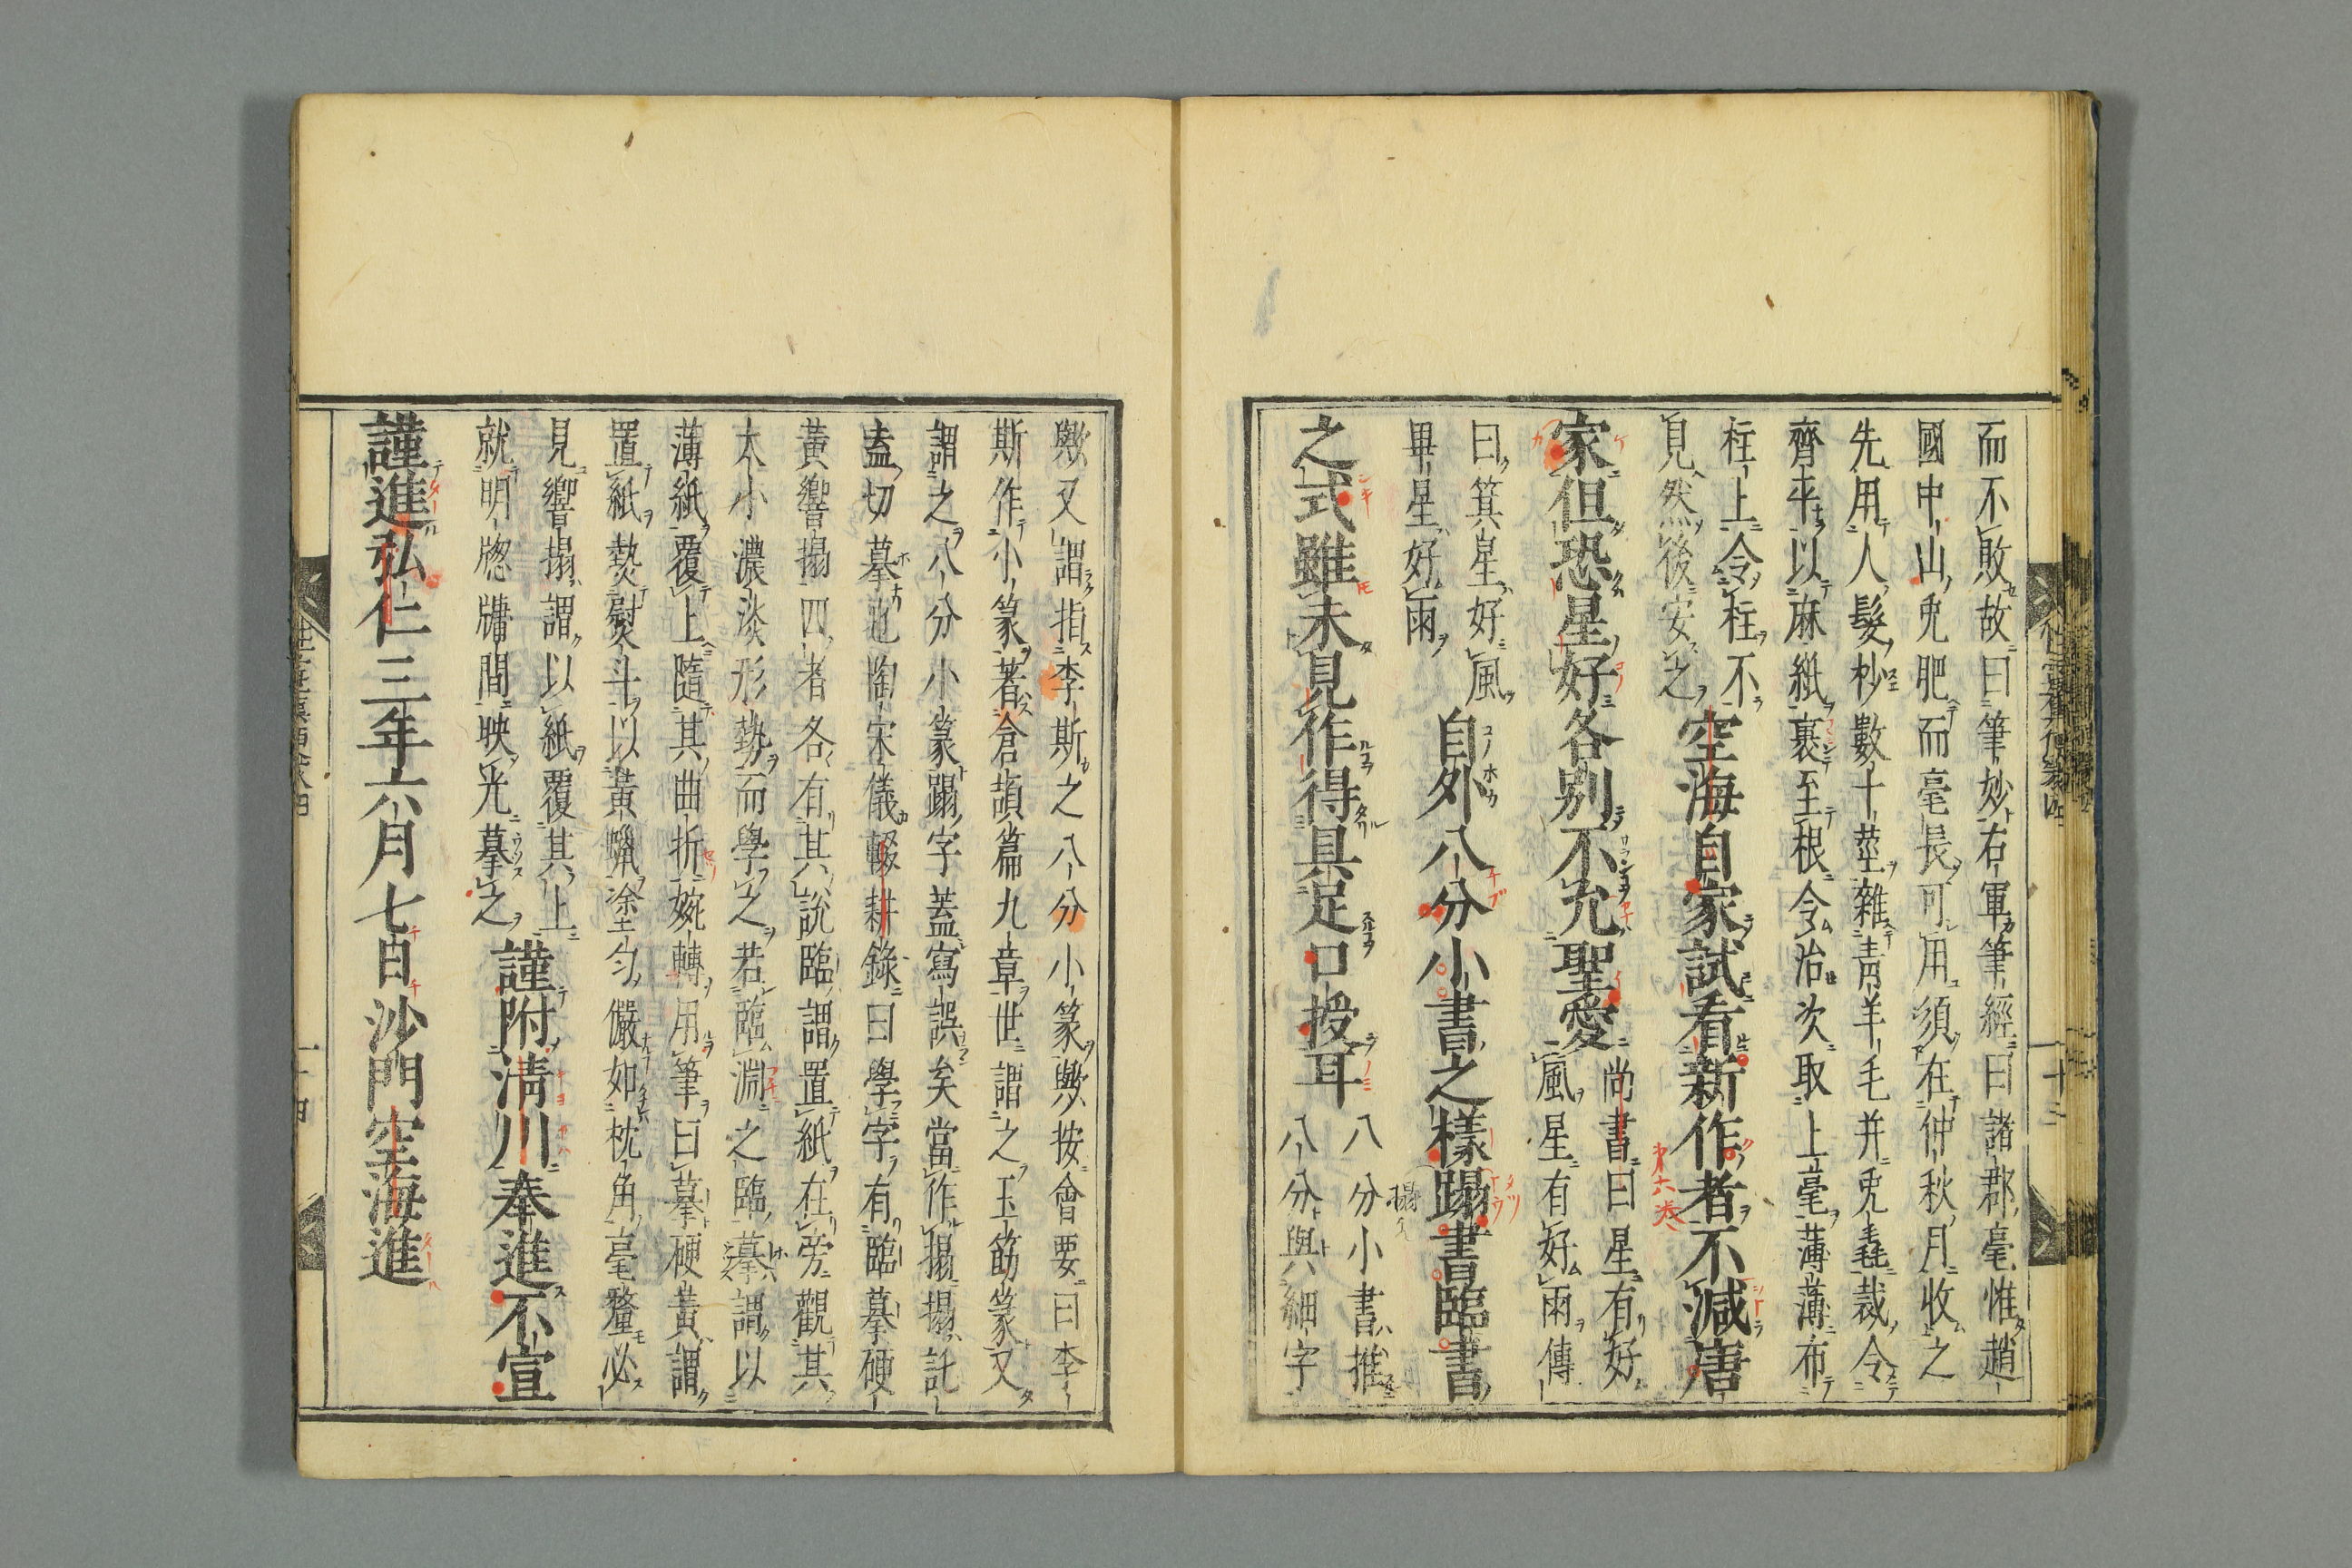 而不敗故曰筆妙右軍筆經曰諸郡毫惟趙
國中山兎肥而毫長可用須在仲秋月收之
先用人髮杪數十莖雜靑羊毛并兎毳裁令
齊平以麻紙裹至根令治次取上毫薄薄布
柱上令柱不
見然後安之
空海自家試看新作者不減唐
家但恐星好各別不允聖愛
尚書曰星有好
風星有好雨傳
曰箕星好風
畢星好雨
自外八分小書之樣蹋書臨書
之式雖未見作得具足口授耳
八分小書推
八分與細字
歟又謂指李斯之八分小篆歟按會要曰李
斯作小篆著倉頡篇九章世謂之玉筯篆又
謂之八分小篆蹋字蓋寫誤矣當作搨搨託
盍切摹也陶宋儀輟耕錄曰學字有臨摹硬
黃響搨四者各有其說臨謂置紙在旁觀其
大小濃淡形勢而學之若臨淵之臨摹謂以
薄紙覆上隨其曲折婉轉用筆曰摹硬黃謂
置紙熱熨斗以黃蠟塗勻儼如枕角毫釐必
見響搨謂以紙覆其上
就明牎牗間映光摹之
謹附淸川奉進不宣
謹進弘仁三年六月七日沙門空海進